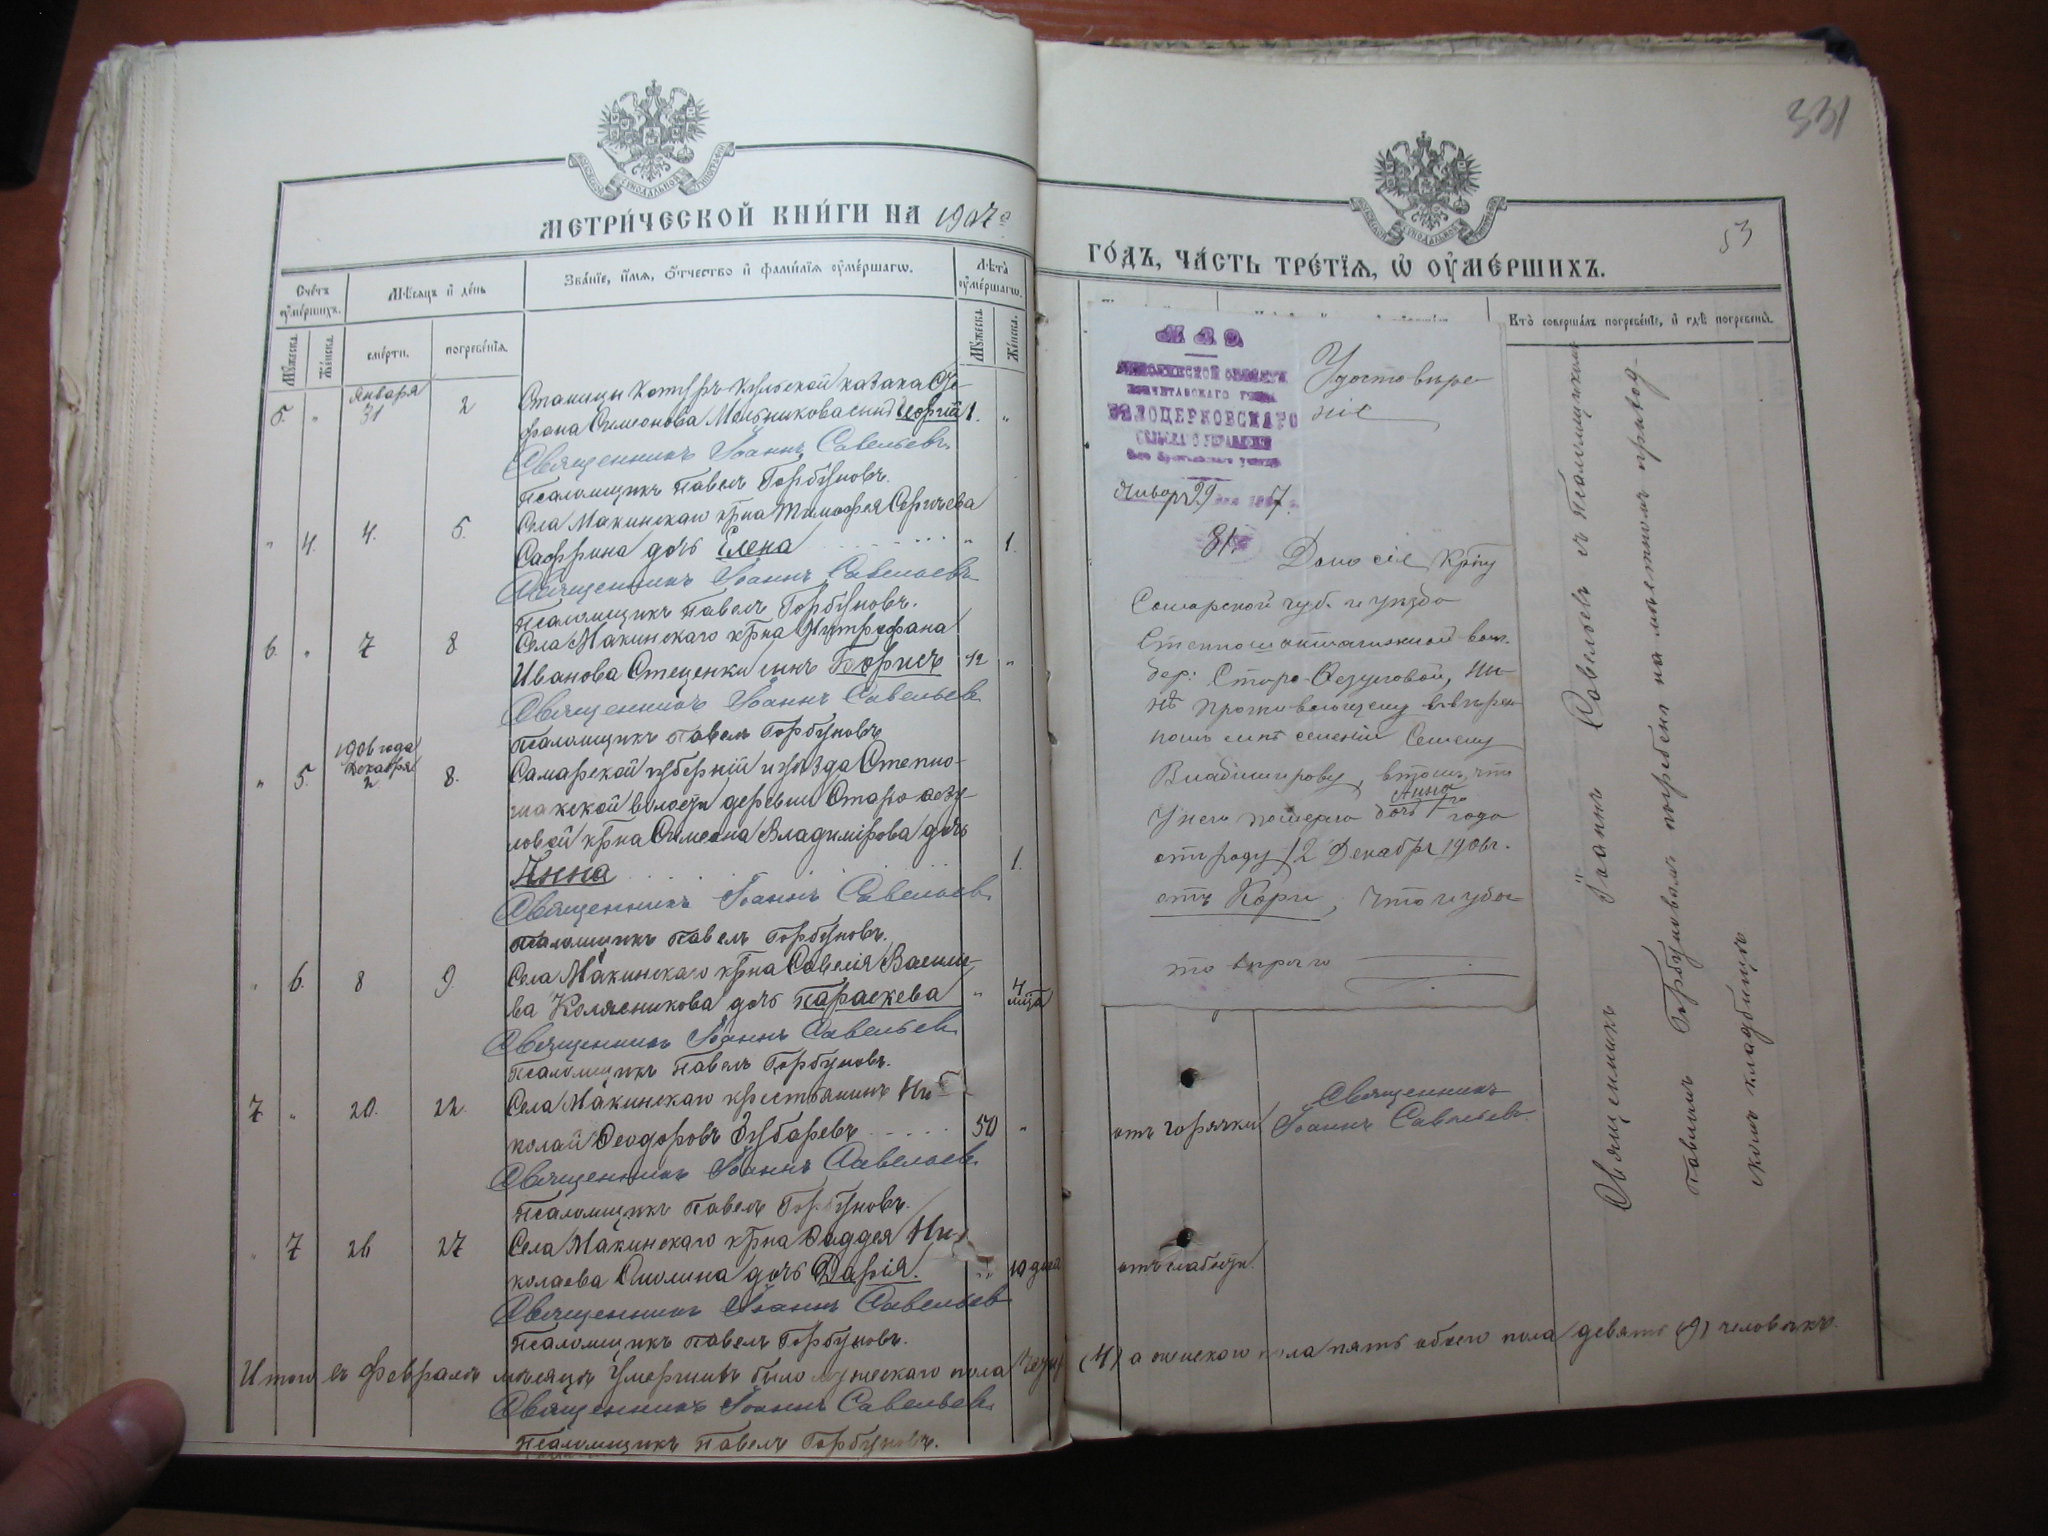 МЕТРИЧЕСКОЙ КНИГИ НА 1907 г
Счетъ умершихъ.
Мѣсяцъ и день
Званіе, имя, отчество и фамилія умершаго.
Лѣта умершаго.
Мужеска.
Женска.
смерти.
погребенія.
Мужеска.
Женска.
5. " Января 31 2 Станицы Котуръ-Кульской казака
Симеонова Мельникова сынъ Георгій 1. "
Священникъ Іоаннъ Савельевъ.
Псаломщикъ Павелъ Горбуновъ.
" 4. 4. 5. Села Макинскаго кр҃на Тимофея Сергѣева
Сафрина дочь Елена " 1.
Священникъ Іоаннъ Савельевъ
Псаломщикъ Павелъ Горбуновъ.
6. " 7 8 Села Макинскаго кр҃на Митрофана
Иванова Стеценки сынъ Борисъ "
Священникъ Іоаннъ Савельевъ
Псаломщикъ Павелъ Горбуновъ
" 5. 1906 года Декабря 2 8. Самарской губерніи и уѣзда
волости деревни Старо
кр҃на Симеона Владимірова дочь
Анна 1.
Священникъ Іоаннъ Савельевъ
Псаломщикъ Павелъ Горбуновъ.
" 6. 8 9 Села Макинскаго кр҃на Савелія Василь-
ва Колясникова дочь Параскева " 4 мѣс҃ца
Священникъ Іоаннъ Савельевъ.
Псаломщикъ Павелъ Горбуновъ.
7 " 20. 22. Села Макинскаго крестьянинъ Ни-
колай Ѳеодоровъ Зубаревъ 50 "
Священникъ Іоаннъ Савельевъ.
Псаломщикъ Павелъ Горбуновъ.
" 7 26 27 Села Макинскаго кр҃на Ѳаддея Ни-
колаева Смолина дочь Дарія. "
Священникъ Іоаннъ Савельевъ
Псаломщикъ Павелъ Горбуновъ.
Итого въ Февралѣ мѣсяцѣ умершихъ было мужескаго пола
Священникъ Іоаннъ Савельевъ.
Псаломщикъ Павелъ Горбуновъ.
331
53
ГОДЪ, ЧАСТЬ ТРЕТІЯ, Ѡ УМЕРШИХЪ.
Кто совершалъ погребеніе, и гдѣ погребены.
М. В. Д.
БѢЛОЦЕРКОВСКАГО
Удостовѣре-
ніе
Января 29 дня 1907 г.
Дано сіе кр҃ну
Самарской губ. и уѣзда
дер: Старо-
нѣ проживающему
селеніи Семену
Владимірову, въ томъ, что
у него померла дочь Анна 1 го года
отъ роду 2 Декабря 1906 г.
отъ Кори, что и удос-
то вѣряю
отъ горячки
Священникъ
Іоаннъ Савельевъ
отъ слабости
(4) а женскаго пола пять обоего пола девять (9) человѣкъ.
Священникъ Іоаннъ Савельевъ съ Псаломщикомъ
Павломъ Горбуновымъ погребены на мѣстномъ приход-
скомъ кладбищѣ